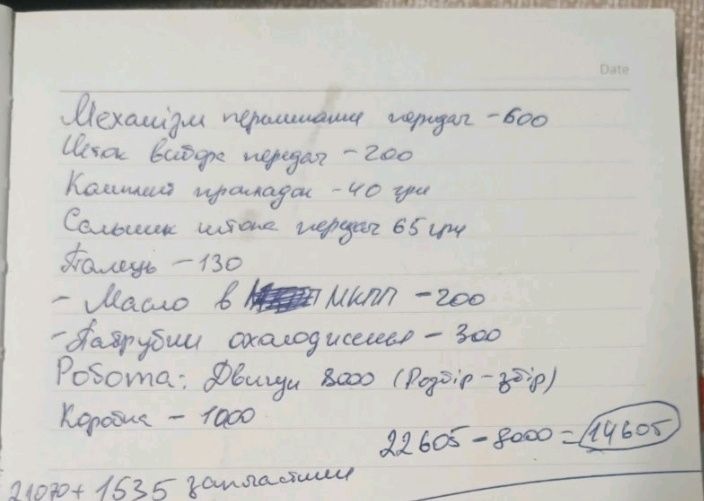 Date
Механізм перемикання передач - 600
Шток вибора передач - 200
Комплект прокладок - 40 грн
Сальник штока передач 65 грн
Палець - 130
- Масло в МКПП - 200
- Патрубки охолодження - 300
Робота: Двигун 8000 (Розбір - збір)
Коробка - 1000
22605 - 8000 = 14605
21070 + 1535 запчастини